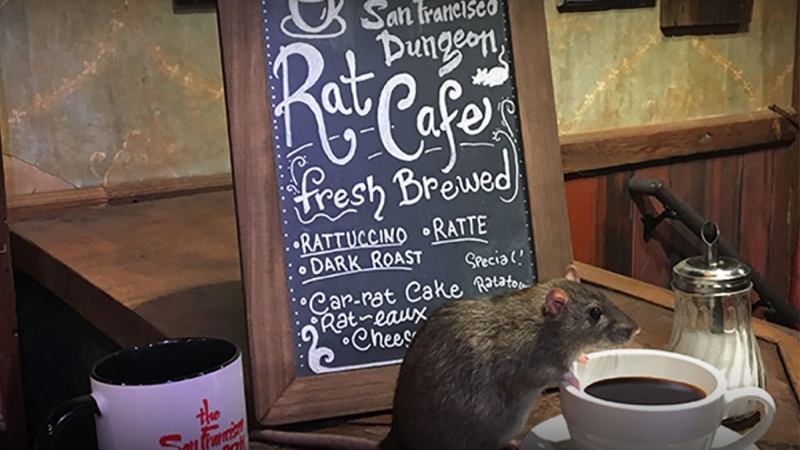 San Francisco
Dungeon
Rat
Cafe
fresh Brewed
•RATTUCCINO •RATTE
•DARK ROAST
Special!
•Car-rat Cake
•Rat-eaux
the
San Francisco